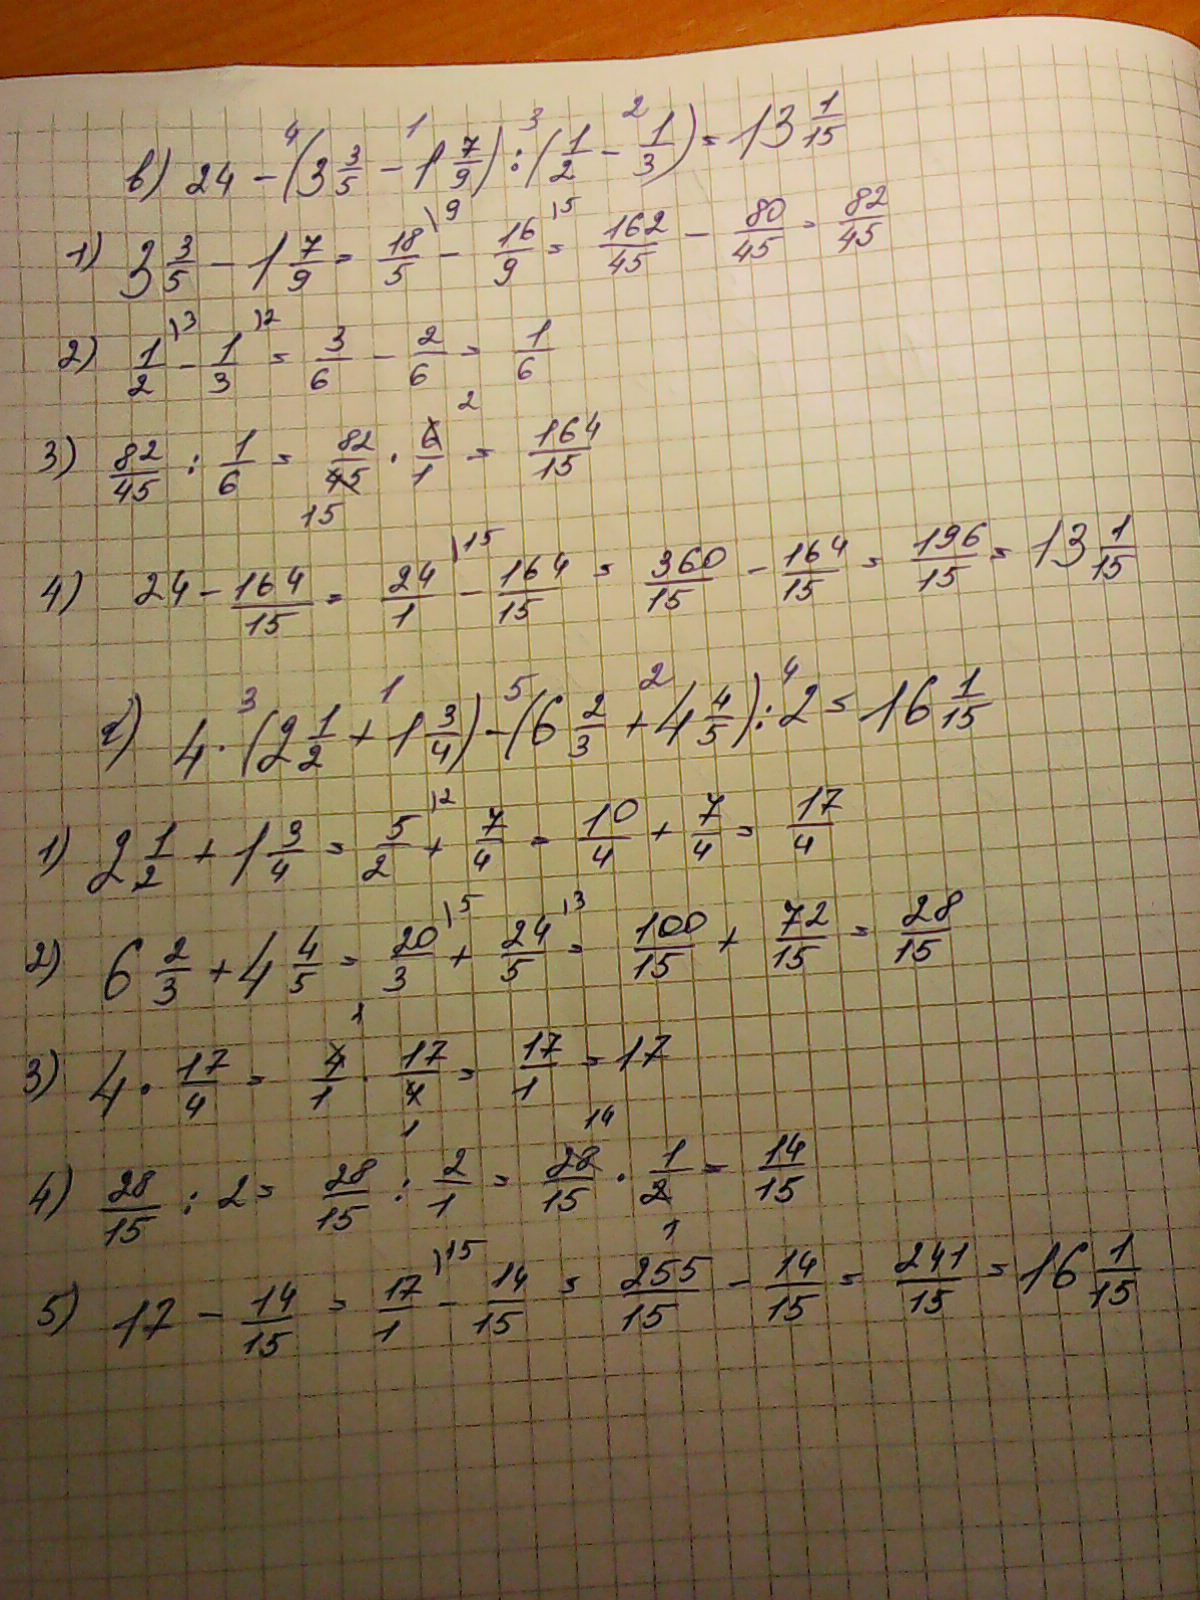 в) 24 - (3 3/5 - 1 7/9) : (1/2 - 1/3) = 13 1/15
1) 3 3/5 - 1 7/9 = 18/5 - 16/9 = 162/45 - 80/45 = 82/45
2) 1/2 - 1/3 = 3/6 - 2/6 = 1/6
3) 82/45 : 1/6 = 82/45 · 6/1 = 164/15
4) 24 - 164/15 = 24/1 - 164/15 = 360/15 - 164/15 = 196/15 = 13 1/15
г) 4 · (2 1/2 + 1 3/4) - (6 2/3 + 4 4/5) : 2 = 16 1/15
1) 2 1/2 + 1 3/4 = 5/2 + 7/4 = 10/4 + 7/4 = 17/4
2) 6 2/3 + 4 4/5 = 20/3 + 24/5 = 100/15 + 72/15 = 28/15
3) 4 · 17/4 = 4/1 · 17/4 = 17/1 = 17
4) 28/15 : 2 = 28/15 : 2/1 = 28/15 · 1/2 = 14/15
5) 17 - 14/15 = 17/1 - 14/15 = 255/15 - 14/15 = 241/15 = 16 1/15